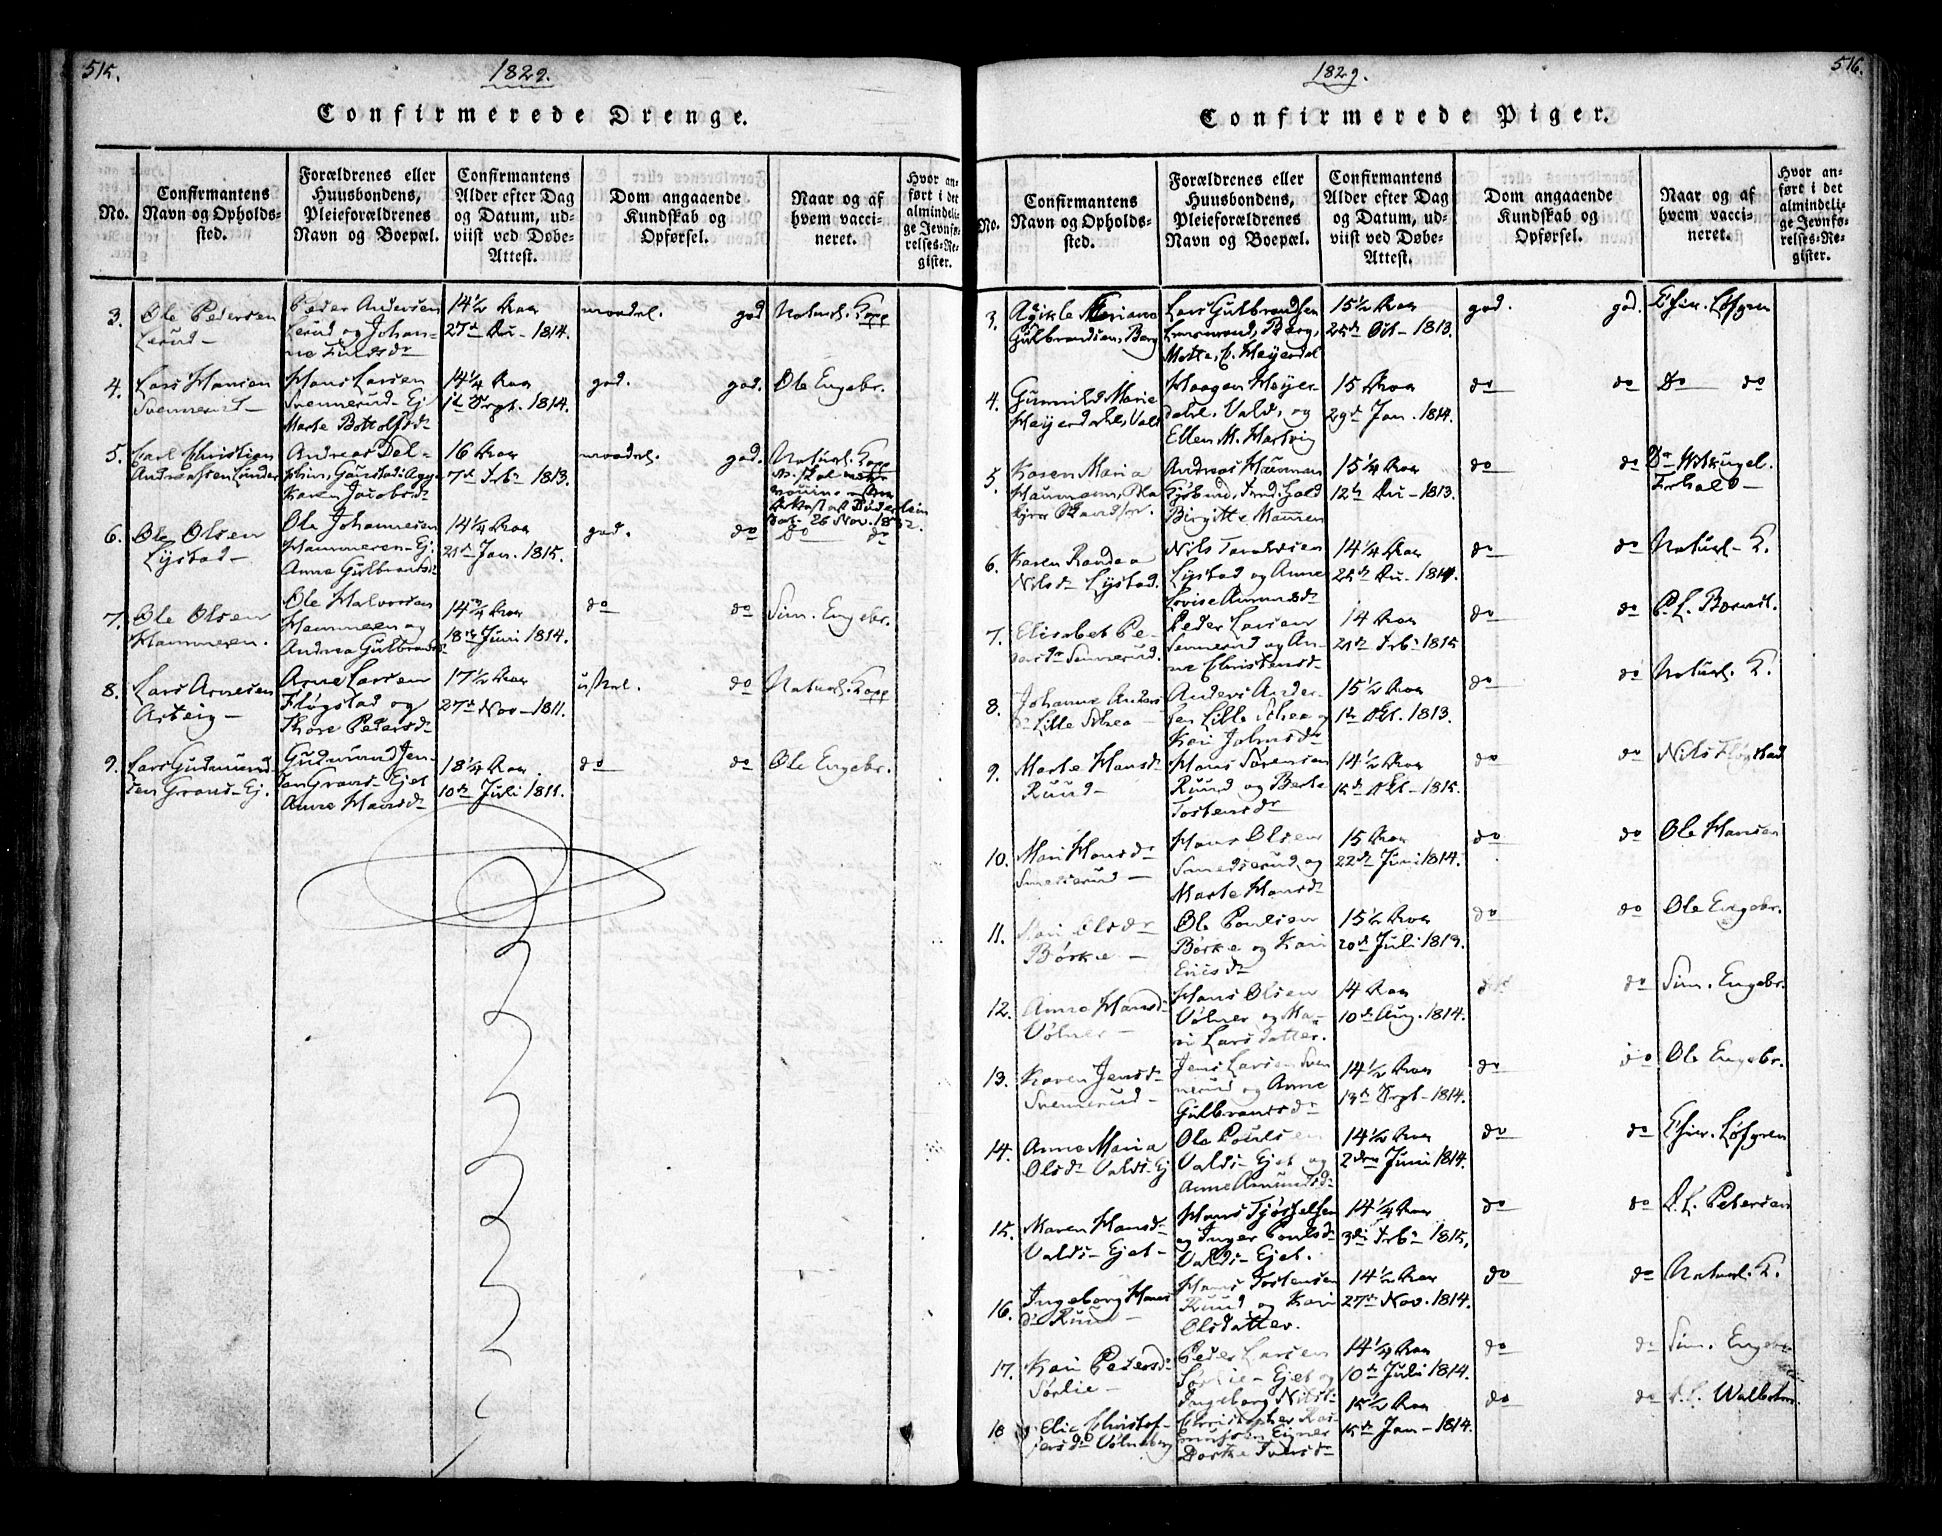 515.
1829.
Confirmerede Drenge.
No.
Confirmantens
Navn og Opholds-
sted.
Forældrenes eller
Huusbondens,
Pleieforældrenes
Navn og Boepæl.
Confirmantens
Alder efter Dag
og Datum, ud-
viist ved Døbe-
Attest.
Dom angaaende
Kundskab og
Opførsel.
Naar og af
hvem vacci-
neret.
Hvor an-
ført i det
almindeli-
ge Jevnfø-
relses-Re-
gister.
3.
Ole Pedersen
Lerud-
Peder Andersen
Lerud og Johan-
ne
14½ Aar
27de Dec - 1814.
maadel. god
Naturl. Kopp
4.
Lars Hansen
Svennerud-
Hans Larsen
Svennerud-Ej
Marte Bottolfsdr
14¼ Aar
Sept. 1814.
god. god.
Ole Engebr.
5.
Carl Christian
Andreas Del-
Karen Jacobsdr
16 Aar
7de Feb: 1813.
maadel. god.
Naturl. Kopp
26 Nov. 1832.
6.
Ole Olsen
Lystad-
Ole Johannesen
Hammeren-Ej.
Anne Gulbrandsdr
14¼ Aar
Jan. 1815.
god. do
Do do
7.
Ole Olsen
Hammeren.
Ole Halvorsen
Hammeren og
Andrea Gulbrandsdr
14¾ Aar
18de Juni 1814.
do do
Sim. Engebr.
8.
Lars Arnesen
Asteig-
Arne Larsen
Fløgstad og
Thore Pedersdr
17½ Aar
27de Nov-1811.
do
Naturl. Kopp
9.
Lars Gudmund-
sen Grans-Ej.
Gudmund Jen-
sen Grans-Ejet
Anne Hansdr
18¼ Aar
10de Juli 1811.
do do
Ole Engebr.
516.
1829.
Confirmerede Piger.
No.
Confirmantens
Navn og Opholds-
sted.
Forældrenes eller
Huusbondens,
Pleieforældrenes
Navn og Boepæl.
Confirmantens
Alder efter Dag
og Datum, ud-
viist ved Døbe-
Attest.
Dom angaaende
Kundskab og
Opførsel.
Naar og af
hvem vacci-
neret.
Hvor an-
ført i det
almindeli-
ge Jevnfø-
relses-Re-
gister.
3.
Gulbrandsen, Berg
Lars Gulbrandsen
Berg,
Heyerdal
15½ Aar
25de Oct-1813.
god. god.
Løfgren
4.
Gunnild Marie
Heyerdahl, Vald
Haagen Heyer-
dahl, Vald, og
Ellen M. Hartvig
15 Aar
29de Jan. 1814.
do do
Do do
5.
Karen Maria
Andreas Haumann
Birgitte
15¼ Aar
12te Dec-1813.
do do
6.
Karen Randea
Nilsdr Lystad.
Nils
Lystad og Anne
Lovise Amundsdr
14¼ Aar
Dec-1814.
do do
Naturl-K.
7.
Elisabet Pe-
dersdr Svennerud.
Peder Larsen
Svennerud og An-
ne Christensdr
14 Aar
Feb: 1815
do do
8.
Johanne Anders
dr Lille Schea-
Anders Ander-
sen Lille Schea og
Kari Johnsdr
15½ Aar
1te Oct. 1813.
do do
Naturl. K.
9.
Marte Hansdr
Ruud-
Hans Sørensen
Ruud og Berte
Tostensdr
14½ Aar
15de Oct-1815.
do do
Nils Fløgstad
10.
Mari Hansdr
Smedserud-
Hans Olsen
Smedserud, og
Marte Hansdr
15 Aar
22de Juni 1814.
do do
Ole Hansen
11.
Mari Olsdr
Børke-
Ole Poulsen
Børke og Kari
Ericsdr
15½ Aar
20de Juli 1813.
do do
Ole Engebr.
12.
Anne Hansdr
Vølner-
Hans Olsen
Vølner og Ma-
ri Larsdatter.
14 Aar
10de Aug. 1814.
do do
Sim. Engebr.
13.
Karen Jensdr
Svennerud-
Jens Larsen Sven
nerud og Anne
Gulbrandsdr
14½ Aar
13de Sept-1814.
do do
Ole Engebr.
14.
Anne Maria
Olsdr Valds-Ej
Ole Poulsen
Valds-Ejet og
Anne Amundsdr
14½ Aar
2den Juni 1814.
do do
Løfgren
15.
Maren Hansdr
Valds-Ejet-
Hans Tjøstelsen
og Inger Poulsdr
Valds-Ejet.
14¼ Aar
3die Feb: 1815.
do do
Petersen
16.
Ingeborg Hans
dr Ruud-
Hans Tostensen
Ruud og Kari
Olsdatter.
14½ Aar
27de Nov. 1814.
do do
Naturl. K.
17.
Kari Pedersdr
Sørlie-
Peder Larsen
Sørlie-Ejet og
Ingeborg Nilsdr
14¼ Aar
10de Juli 1814.
do do
Sim. Engebr
18
Elie Christof-
fersdr Vølneberg
Christopher Ras-
Dorthe Iversdr
15½ Aar
15de Jan-1814.
do do